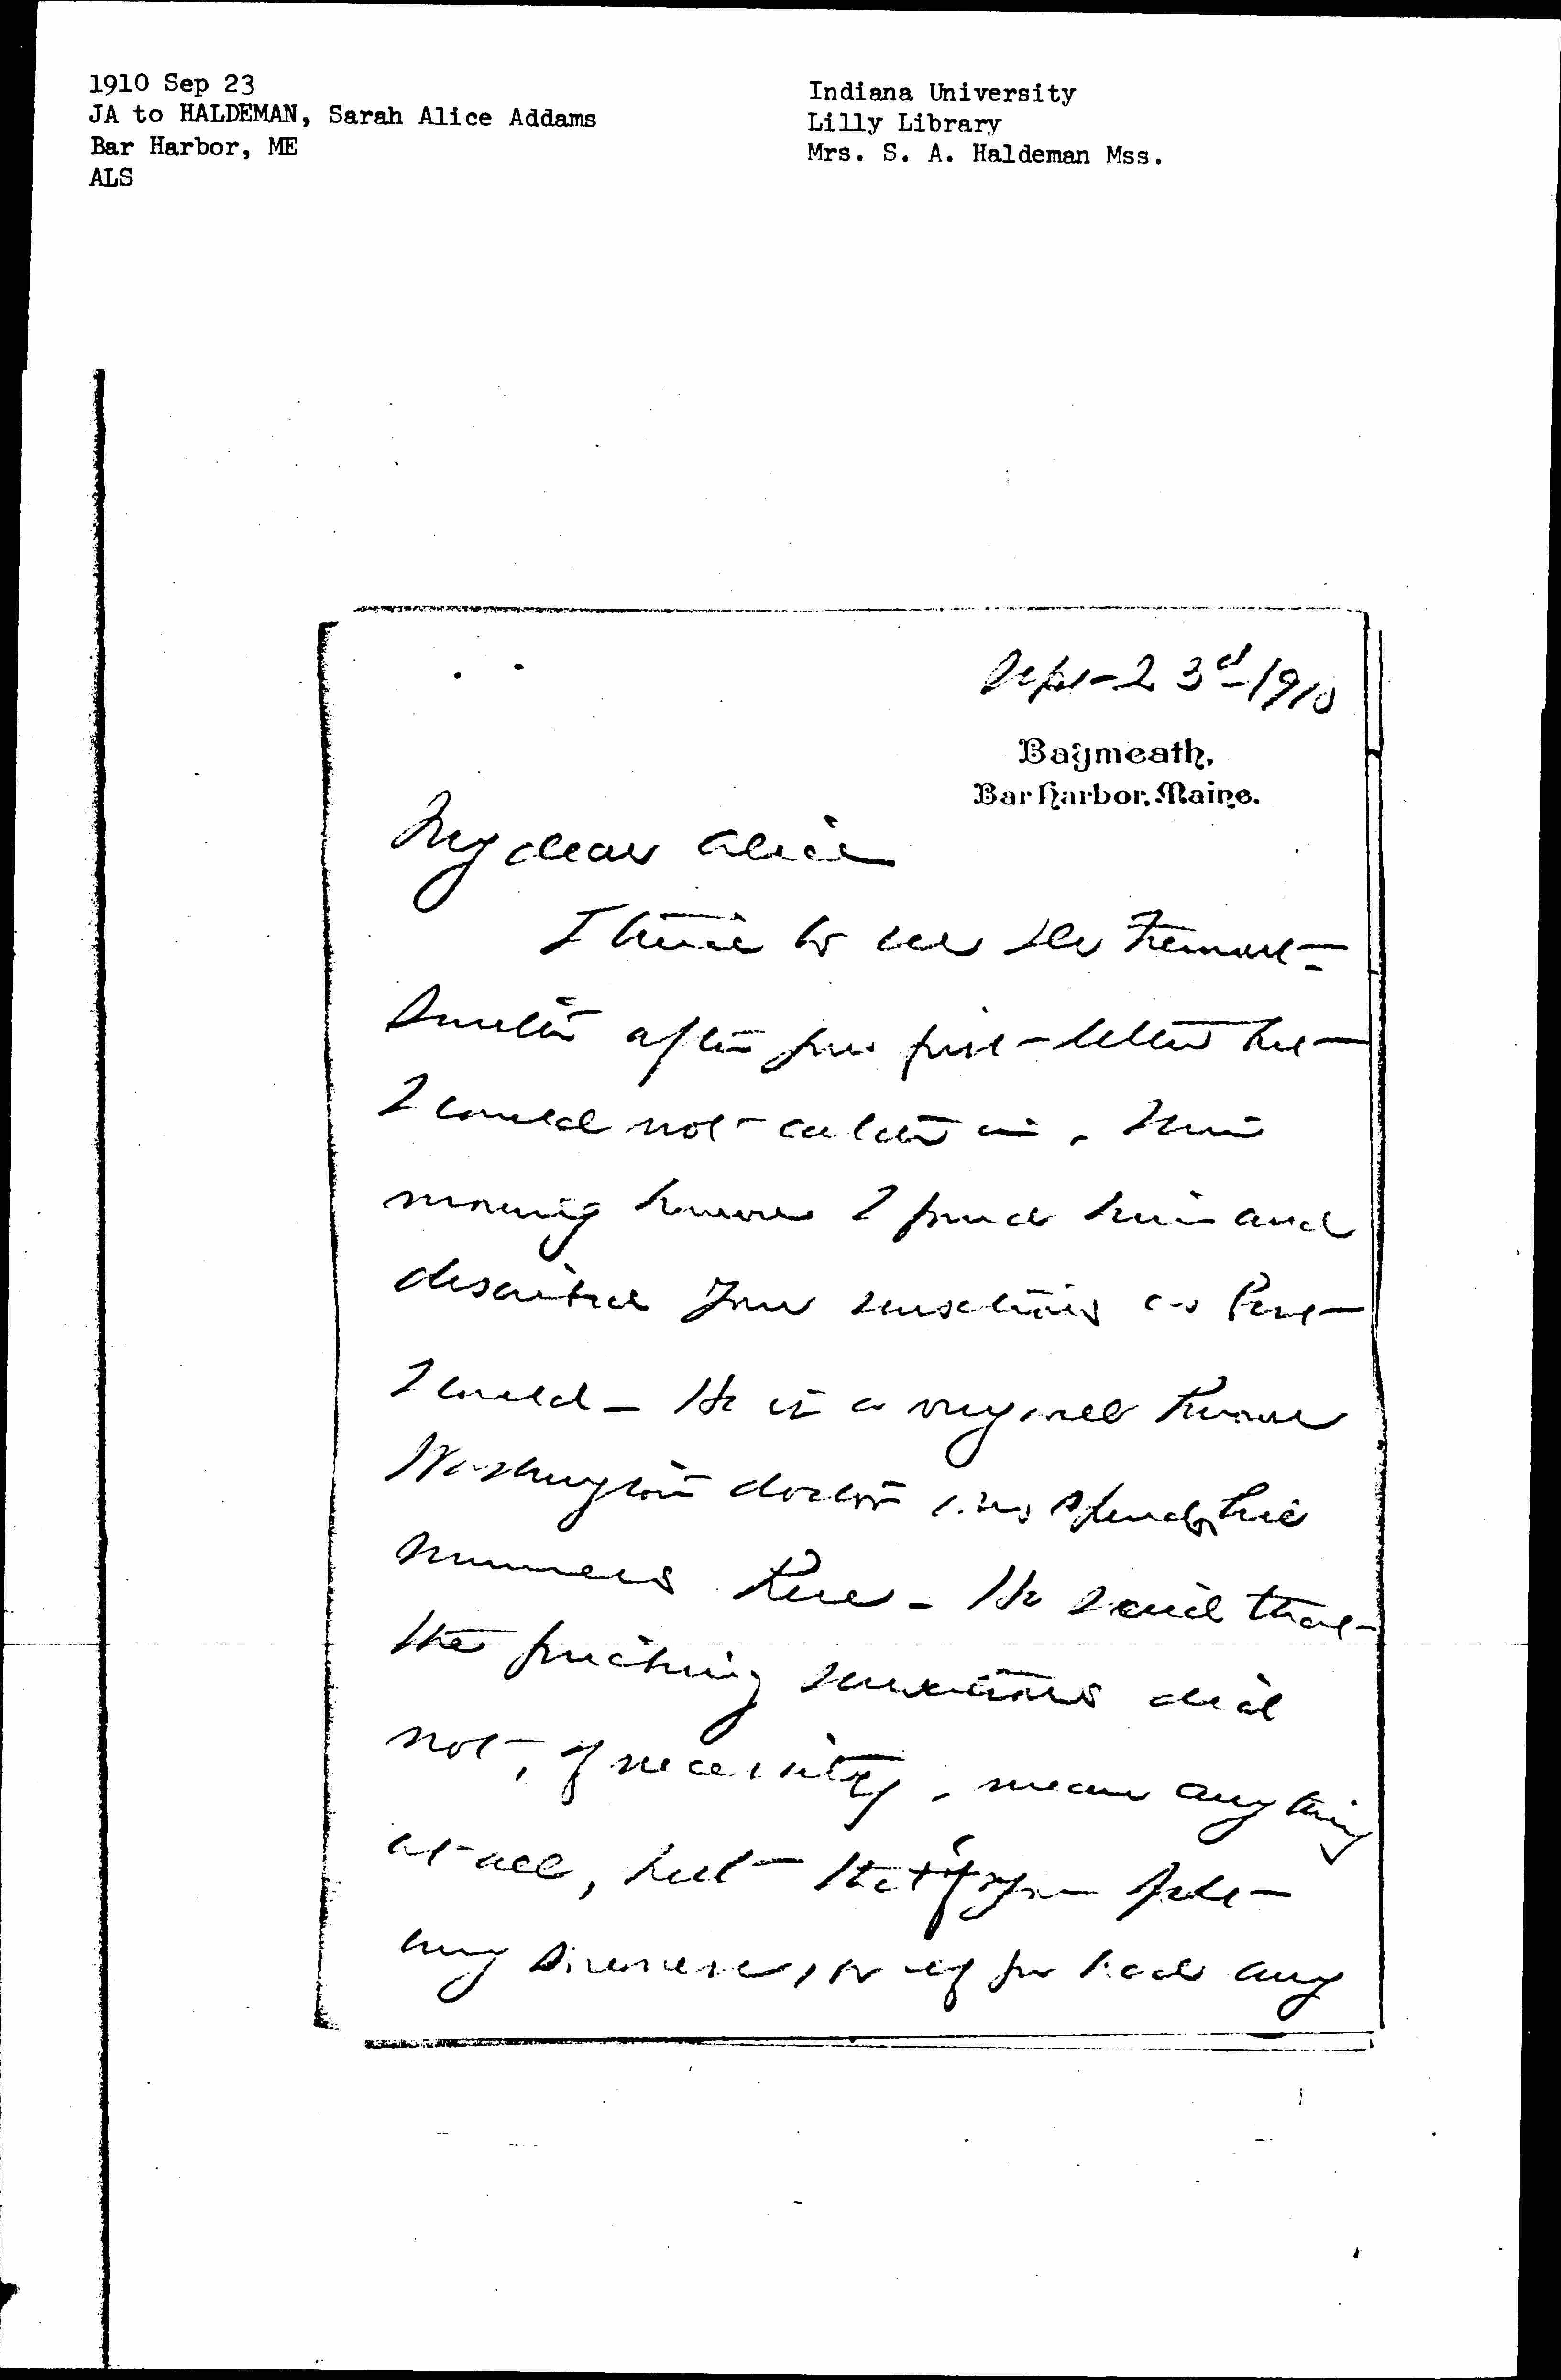 1910 Sep 23
JA to HALDEMAN, Sarah Alice Addams
Bar Harbor, ME
ALS
Indiana University
Lilly Library
Mrs. S. A. Haldeman Mss.
Sept- 23d- 1910
Baymeath,
Bar Harbor, Maine.
My dear Alice
I tried to see Dr Fremont-
Smith after your first letter but
I could not catch him. This
morning however I found him and
described your sensations as best
I could - He is a very well known
Washington doctor who spends his
summers here - He said that
the pricking sensations did
not, of necessity, mean anything
at all, but that if you felt
any soreness, or if you had any